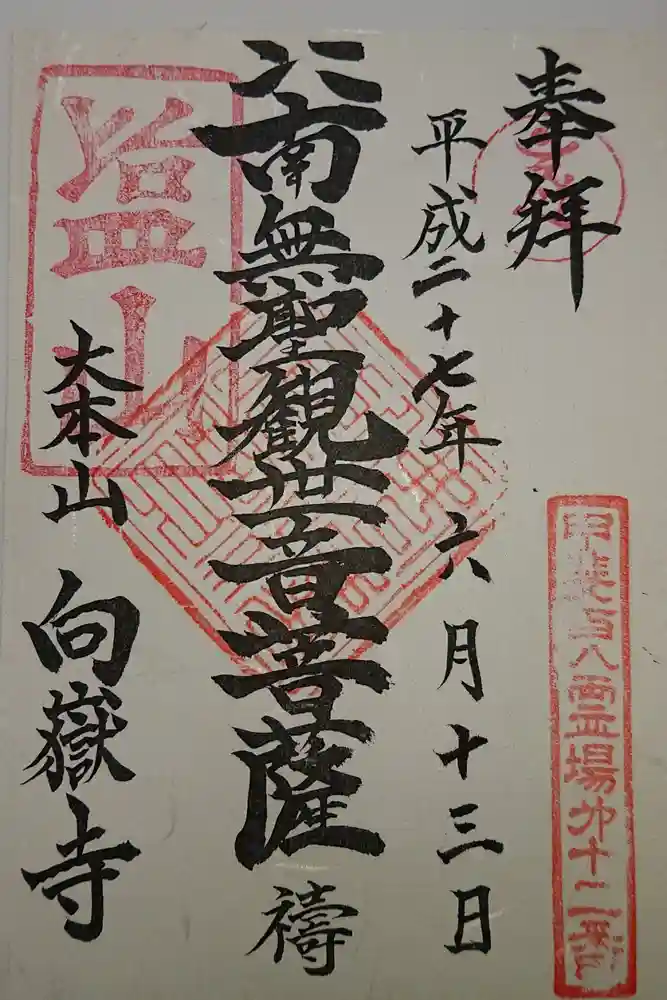 奉拝
平成二十七年六月十三日
南無聖観世音菩薩
祷
大本山
向嶽寺
塩山
甲斐百八霊場第十二番